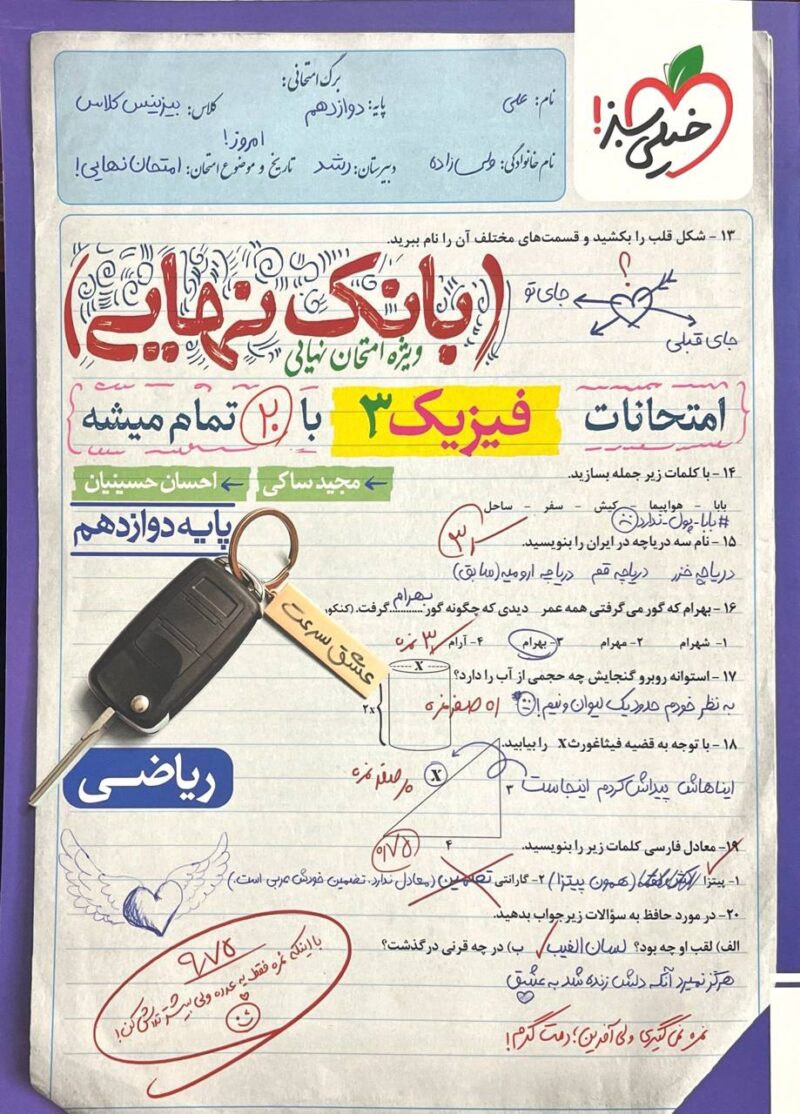 خیلی سبز!
برگ امتحانی:
نام: علی
پایه: دوازدهم
کلاس: بیزینس کلاس
نام خانوادگی: ولی زاده
دبیرستان: رشد
تاریخ و موضوع امتحان: امروز! امتحان نهایی!
۱۳ - شکل قلب را بکشید و قسمت‌های مختلف آن را نام ببرید.
؟
جای تو
جای قبلی
(بانک نهایی)
ویژه امتحان نهایی
امتحانات فیزیک ۳ با ۲۰ تمام میشه
۱۴ - با کلمات زیر جمله بسازید.
← مجید ساکی ← احسان حسینیان
بابا - هواپیما - کیش - سفر - ساحل
#بابا_پول_ندارد
پایه دوازدهم
۱۵ - نام سه دریاچه در ایران را بنویسید.
۳
دریاچه خزر دریاچه قم دریاچه ارومیه (سابق)
۱۶ - بهرام که گور می‌گرفتی همه عمر دیدی که چگونه گور بهرام گرفت. (کنکور،
۱- شهرام ۲- مهرام ۳- بهرام ۴- آرام
۳ نمره
عشق سرعت
۱۷ - استوانه روبرو گنجایش چه حجمی از آب را دارد؟
x
۲x
به نظر خودم حدود یک لیوان و نیم!
اه صفر نمره
۱۸ - با توجه به قضیه فیثاغورث x را بیابید.
ایناهاش پیداش کردم اینجاست
x
۳
۴
صفر نمره
ریاضی
۰/۷۵
۱۹- معادل فارسی کلمات زیر را بنویسید.
۱- پیتزا (همون پیتزا) ۲- گارانتی تضمین (معادل ندارد. تضمین خودش عربی است.)
۲۰- در مورد حافظ به سؤالات زیر جواب بدهید.
الف) لقب او چه بود؟ لسان الغیب ب) در چه قرنی درگذشت؟
هرگز نمیرد آنکه دلش زنده شد به عشق
۹/۷۵
با اینکه نمره فقط یه عدده ولی بیشتر تلاش کن!
نمره نمی‌گیری ولی آفرین؛ دمت گرم!